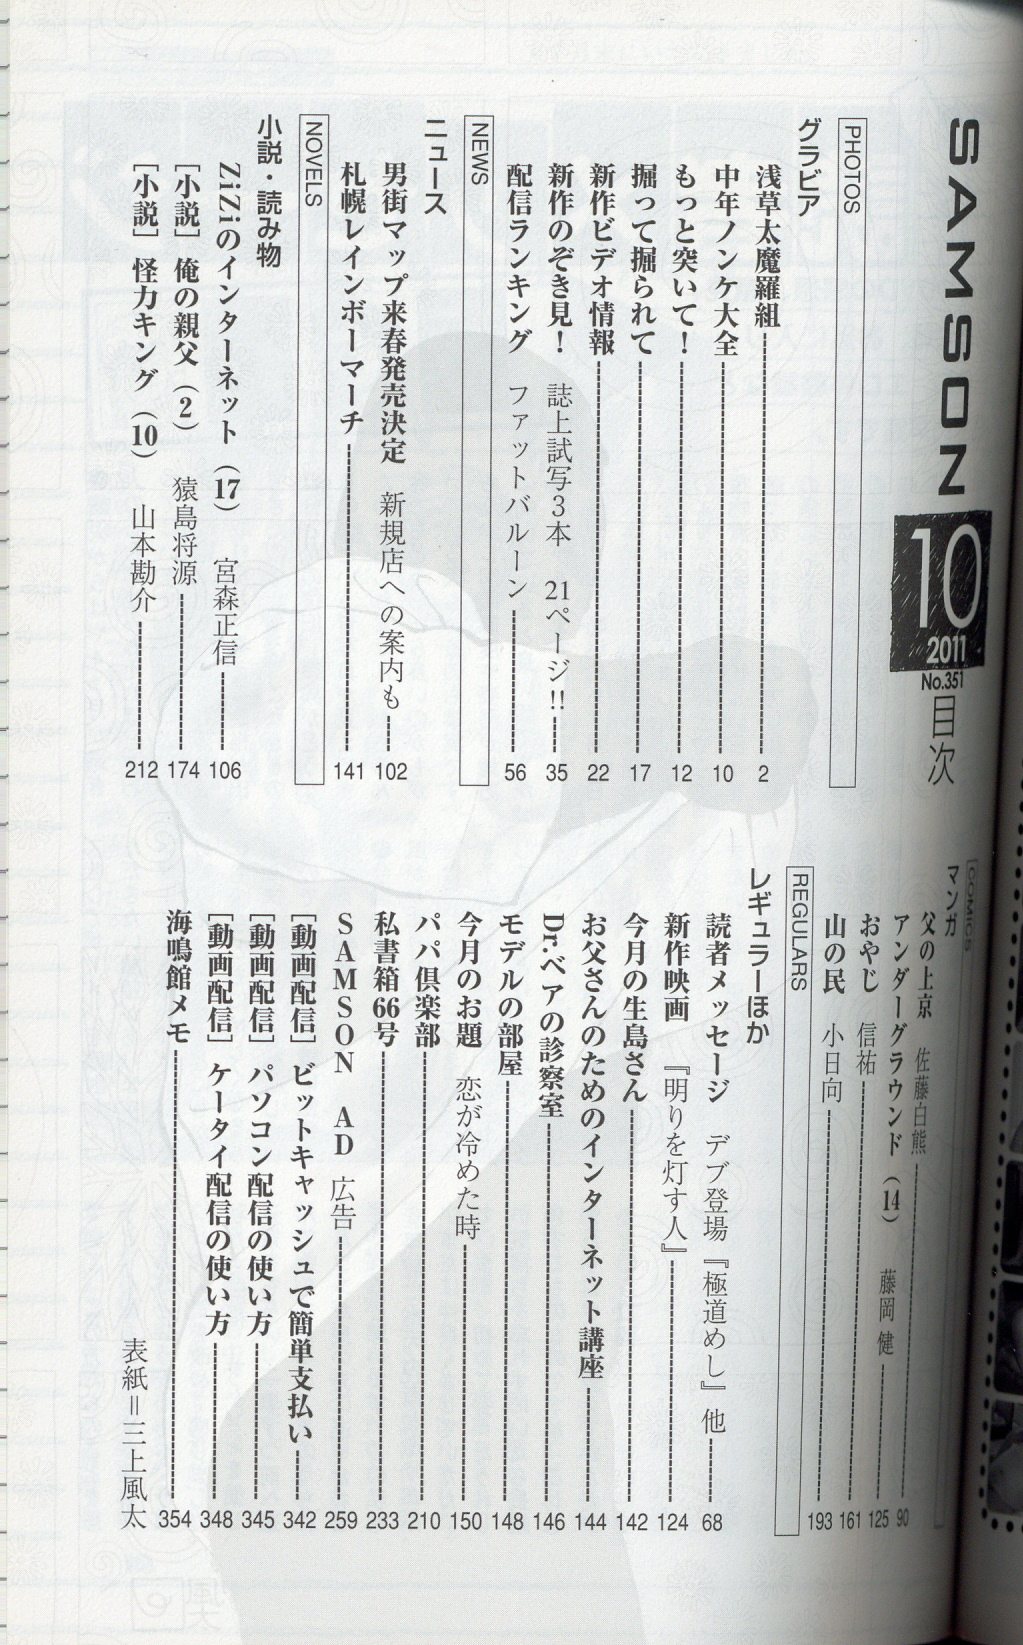 SAMSON
10
2011
No.351
目次
PHOTOS
グラビア
浅草太魔羅組 2
中年ノンケ大全 10
もっと突いて！ 12
掘って掘られて 17
新作ビデオ情報 22
新作のぞき見！ 誌上試写3本 21ページ!! 35
配信ランキング ファットバルーン 56
NEWS
ニュース
男街マップ来春発売決定 新規店への案内も 102
札幌レインボーマーチ 141
NOVELS
小説・読み物
ZiZiのインターネット（17） 宮森正信 106
［小説］俺の親父（2） 猿島将源 174
［小説］怪力キング（10） 山本勘介 212
COMICS
マンガ
父の上京 佐藤白熊 90
アンダーグラウンド（14） 藤岡健 125
おやじ 信祐 161
山の民 小日向 193
REGULARS
レギュラーほか
読者メッセージ デブ登場『極道めし』他 68
新作映画 『明りを灯す人』 124
今月の生島さん 142
お父さんのためのインターネット講座 144
Dr.ベアの診察室 146
モデルの部屋 148
今月のお題 恋が冷めた時 150
パパ倶楽部 210
私書箱66号 233
SAMSON AD 広告 259
［動画配信］ビットキャッシュで簡単支払い 342
［動画配信］パソコン配信の使い方 345
［動画配信］ケータイ配信の使い方 348
海鳴館メモ 354
表紙＝三上風太